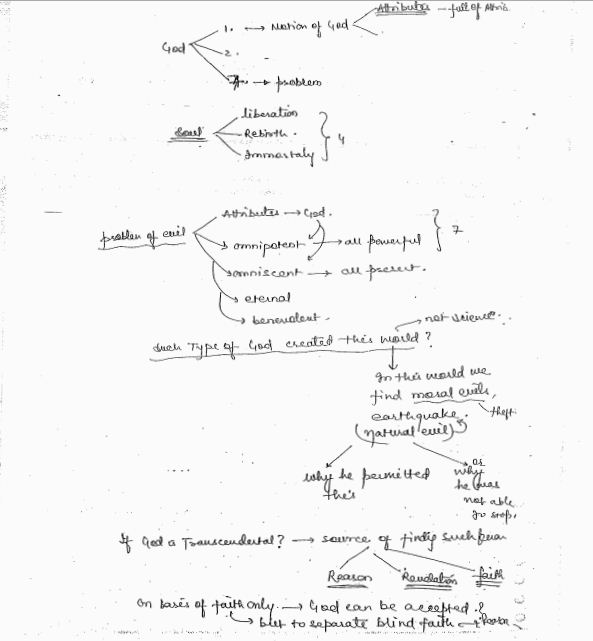 Attributes - full of Attris.
1. → Notion of God
God
2.
→ problem
liberation
Soul
Rebirth.
4
Immortaly
Attributes → God.
problem of evil
omnipotent → all powerful
7
omniscent → all present.
eternal
benevolent.
→ not science.
Such Type of God created this world?
In this world we
find moral evils,
earthquake.
theft
(natural evil)
why he permitted
this
or
why
he was
not able
to stop.
If God is Transcendental? → source of findig such
Reason
Revelation
faith
On bases of faith only. → God can be accepted.?
but to separate blind faith